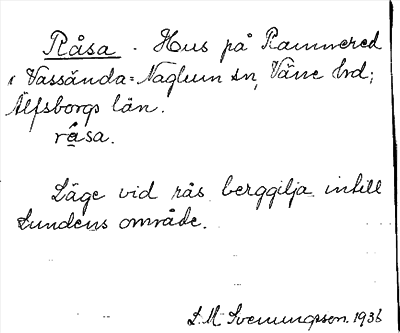 Råsa. Hus på Rammered
i Vassända-Naglum sn, Väne hd;
Älfsborgs län.
råsa.
Läge vid rås berggilja intill
Lundens område.
S. M. Svenungson. 1936